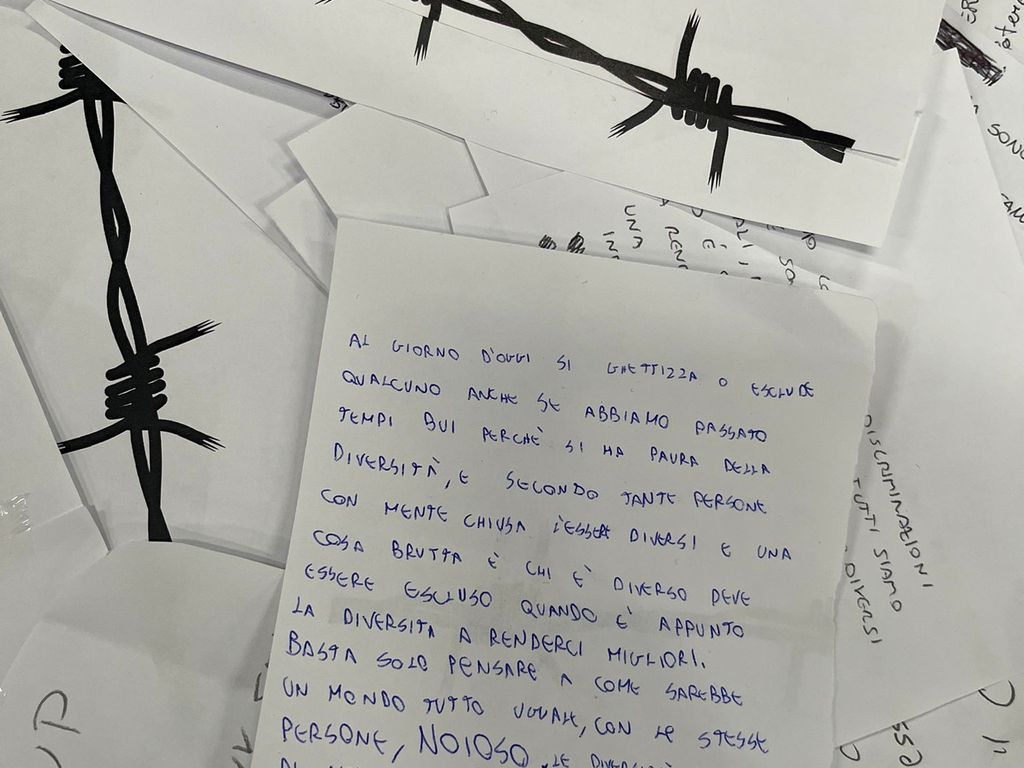 AL GIORNO D'OGGI SI GHETTIZZA O ESCLUDE
QUALCUNO ANCHE SE ABBIAMO PASSATO
TEMPI BUI PERCHÈ SI HA PAURA DELLA
DIVERSITÀ, E SECONDO TANTE PERSONE
CON MENTE CHIUSA L'ESSERE DIVERSI E UNA
COSA BRUTTA È CHI È DIVERSO DEVE
ESSERE ESCLUSO QUANDO È APPUNTO
LA DIVERSITA A RENDERCI MIGLIORI.
BASTA SOLO PENSARE A COME SAREBBE
UN MONDO TUTTO UGUALE, CON LE STESSE
PERSONE, NOIOSO. LE DIVERSITÀ
DISCRIMINAZIONI
TUTTI SIAMO
DIVERSI